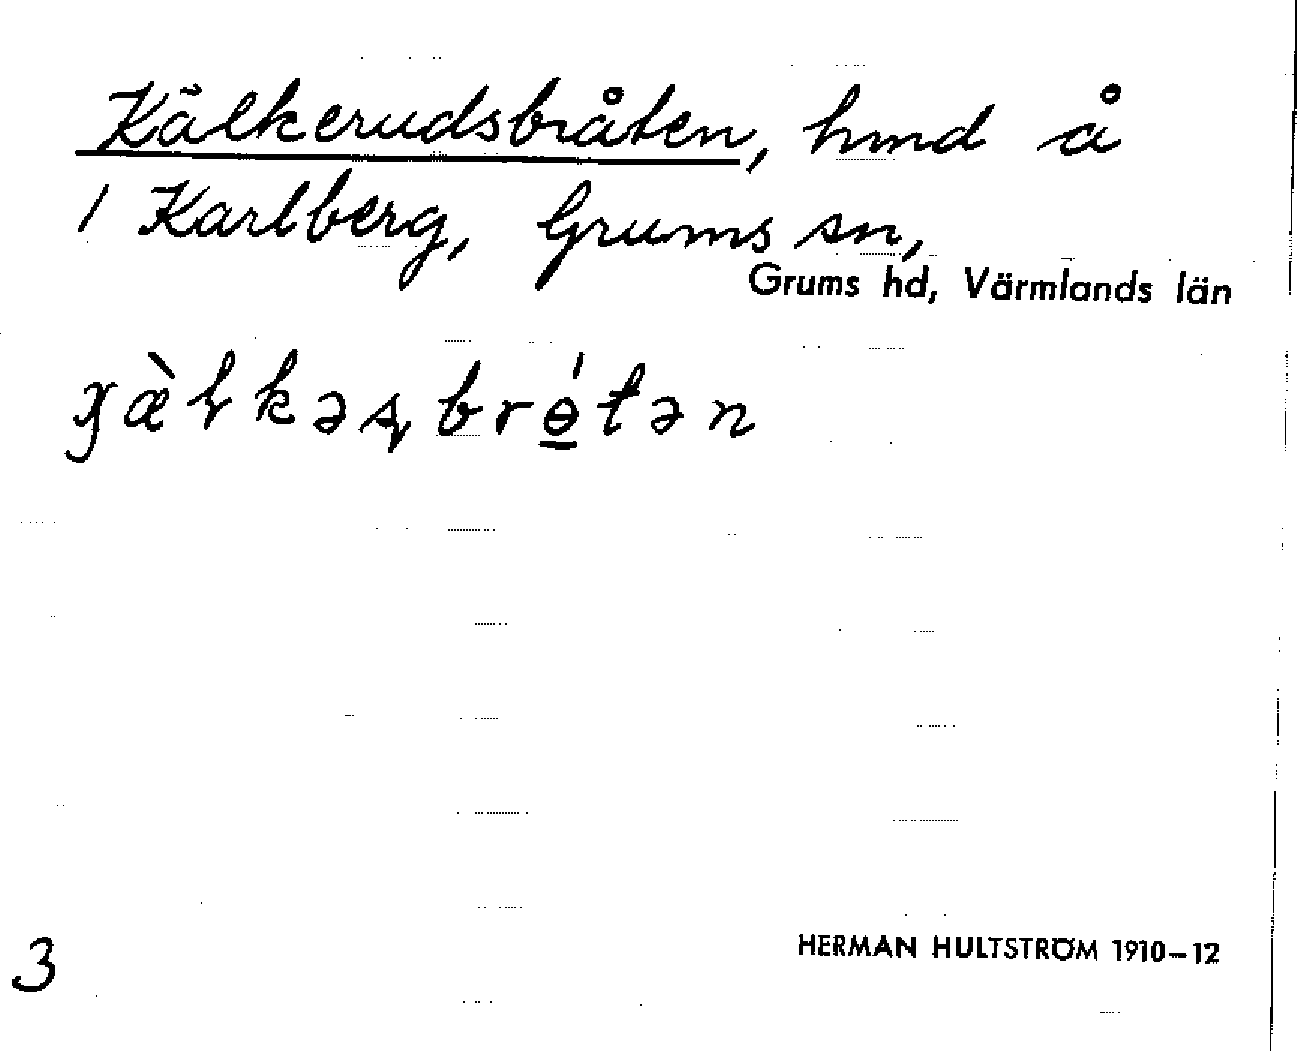 Kälkerudsbråten, hmd å
1 Karlberg, Grums sn,
Grums hd, Värmlands län
3
HERMAN HULTSTRÖM 1910–12